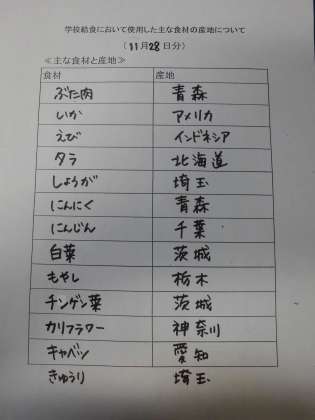 学校給食において使用した主な食材の産地について
(11月28日分)
≪主な食材と産地≫
食材 産地
ぶた肉 青森
いか アメリカ
えび インドネシア
タラ 北海道
しょうが 埼玉
にんにく 青森
にんじん 千葉
白菜 茨城
もやし 栃木
チンゲン菜 茨城
カリフラワー 神奈川
キャベツ 愛知
きゅうり 埼玉